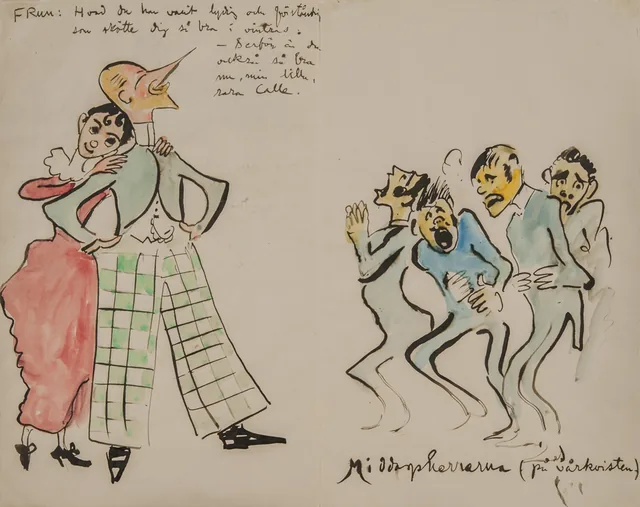 FRUN: Hvad du har varit lydig och förståndig
som skötte dig så bra i vintras.
– Derför är du
också så bra
nu, min lille,
rara Calle.
Middagsherrarna (på vårkvisten)